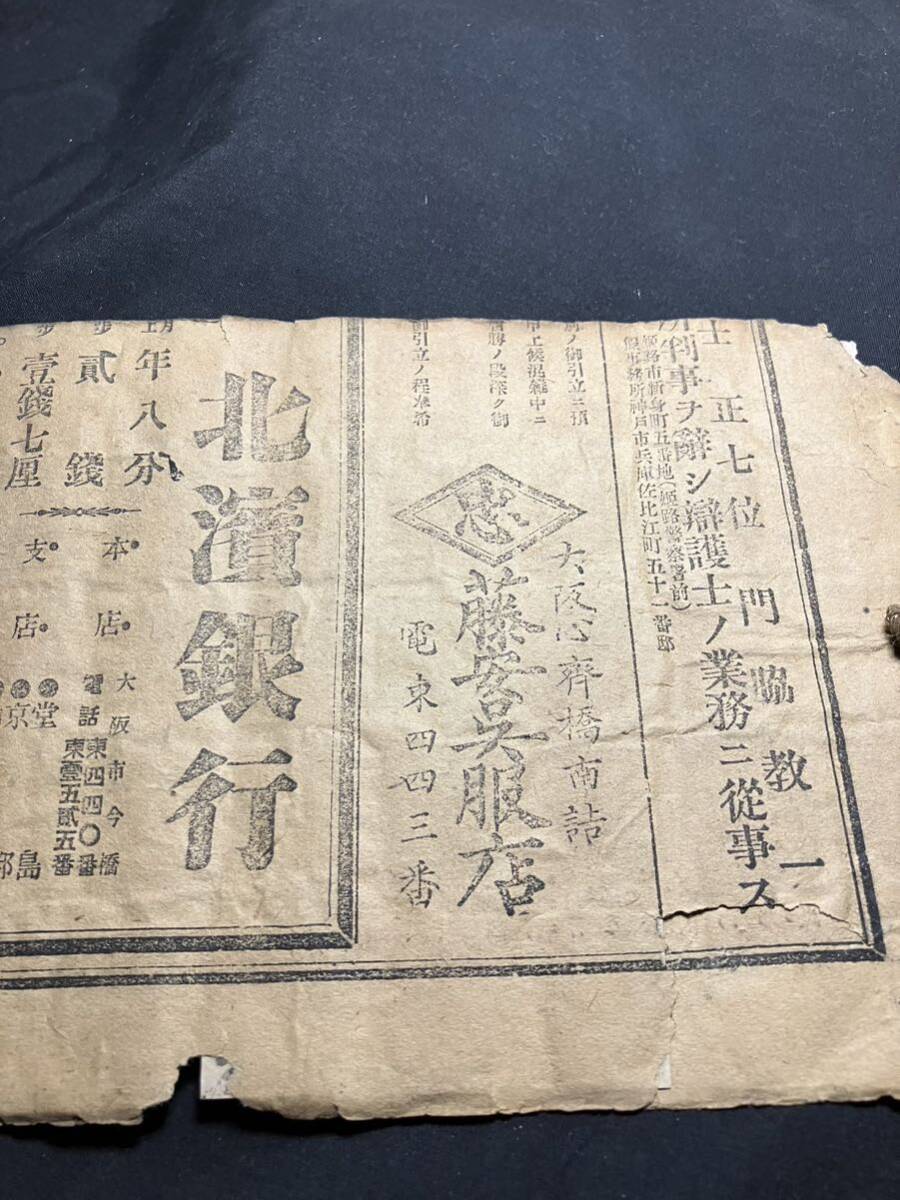 士正七位門脇教一
判事ヲ辭シ辯護士ノ業務ニ從事ス
姫路市新身町五番地(姫路警察署前)
假事務所神戸市兵庫佐比江町五十一番邸
御引立ニ預
申上候混雜中ニ
段深ク御
御引立ノ程
大阪心齊橋南詰
忠
藤吉呉服店
電東四四三番
北濱銀行
年八分
貳錢
壹錢七厘
本店
大阪市今橋
電話東四四〇番
東壹五貳五番
支店
堂島
京